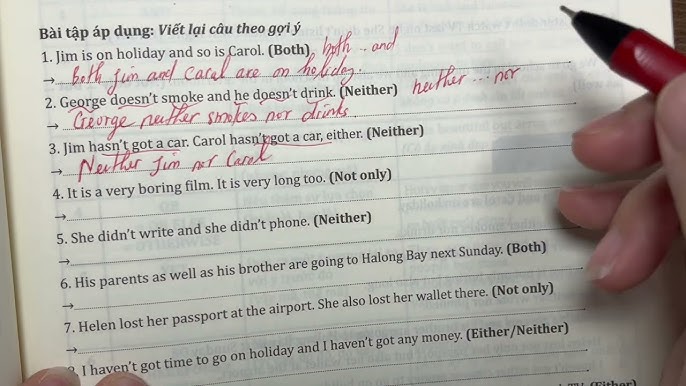 Bài tập áp dụng: Viết lại câu theo gợi ý
1. Jim is on holiday and so is Carol. (Both) both .. and
→ Both Jim and Carol are on holiday.
2. George doesn't smoke and he doesn't drink. (Neither) neither ... nor
→ George neither smokes nor drinks.
3. Jim hasn't got a car. Carol hasn't got a car, either. (Neither)
→ Neither Jim nor Carol
4. It is a very boring film. It is very long too. (Not only)
→
5. She didn't write and she didn't phone. (Neither)
→
6. His parents as well as his brother are going to Halong Bay next Sunday. (Both)
→
7. Helen lost her passport at the airport. She also lost her wallet there. (Not only)
→
8. I haven't got time to go on holiday and I haven't got any money. (Either/Neither)
→
TV. (Either)